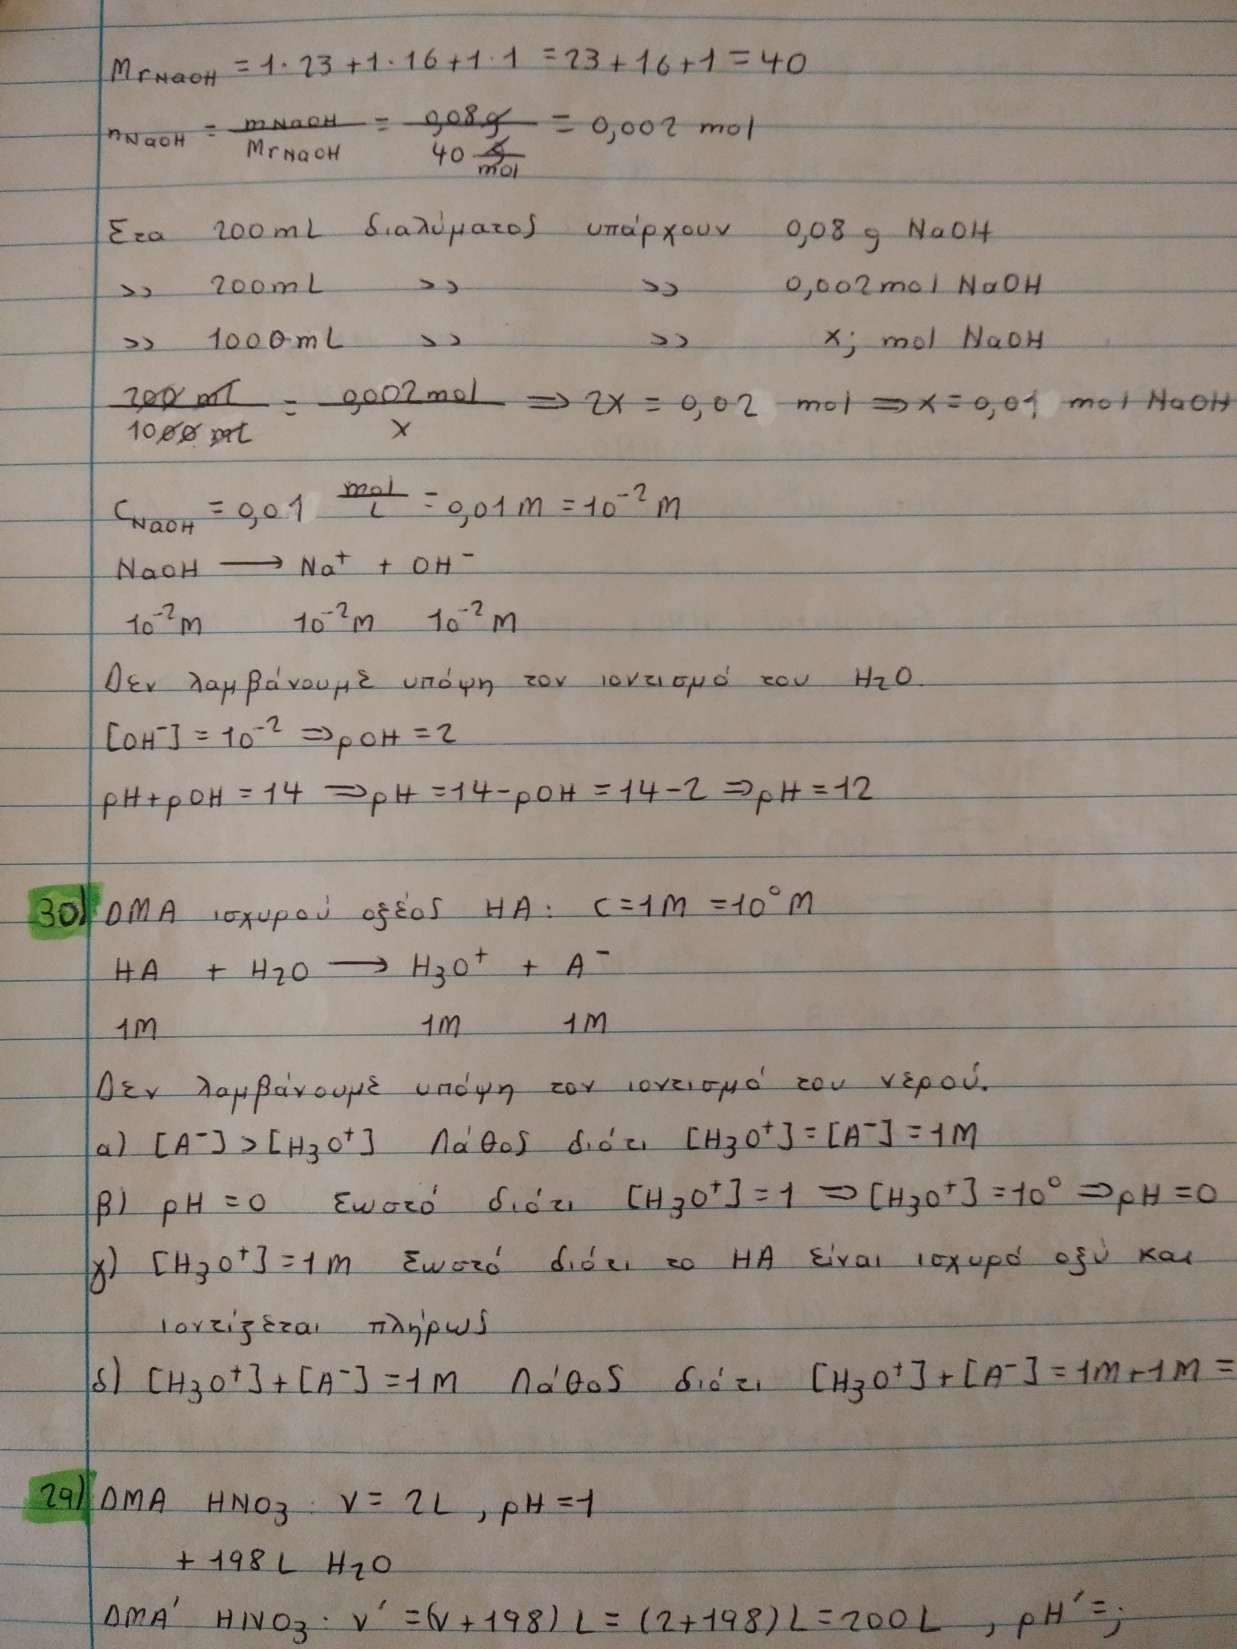 Mr NaOH = 1·23+1·16+1·1 = 23+16+1 = 40
nNaOH = mNaOH / MrNaOH = 0,08g / 40 g/mol = 0,002 mol
Στα 200mL διαλύματος υπάρχουν 0,08 g NaOH
>> 200mL >> >> 0,002mol NaOH
>> 1000mL >> >> x; mol NaOH
200 mL / 1000 mL = 0,002mol / x ⇒ 2x = 0,02 mol ⇒ x = 0,01 mol NaOH
CNaOH = 0,01 mol/L = 0,01 M = 10⁻² M
NaOH ⟶ Na⁺ + OH⁻
10⁻²M 10⁻²M 10⁻²M
Δεν λαμβάνουμε υπόψη τον ιοντισμό του H₂O.
[OH⁻] = 10⁻² ⇒ pOH = 2
pH+pOH = 14 ⇒ pH = 14-pOH = 14-2 ⇒ pH = 12
30) ΔΜΑ ισχυρού οξέος HA: C = 1M = 10⁰ M
HA + H₂O ⟶ H₃O⁺ + A⁻
1M 1M 1M
Δεν λαμβάνουμε υπόψη τον ιοντισμό του νερού.
α) [A⁻] > [H₃O⁺] Λάθος διότι [H₃O⁺] = [A⁻] = 1M
β) pH = 0 Σωστό διότι [H₃O⁺] = 1 ⇒ [H₃O⁺] = 10⁰ ⇒ pH = 0
γ) [H₃O⁺] = 1M Σωστό διότι το HA είναι ισχυρό οξύ και
ιοντίζεται πλήρως
δ) [H₃O⁺] + [A⁻] = 1M Λάθος διότι [H₃O⁺] + [A⁻] = 1M+1M =
29) ΔΜΑ HNO₃: V = 2L, pH = 1
+ 198 L H₂O
ΔΜΑ' HNO₃: V' = (V+198) L = (2+198) L = 200L, pH' = ;